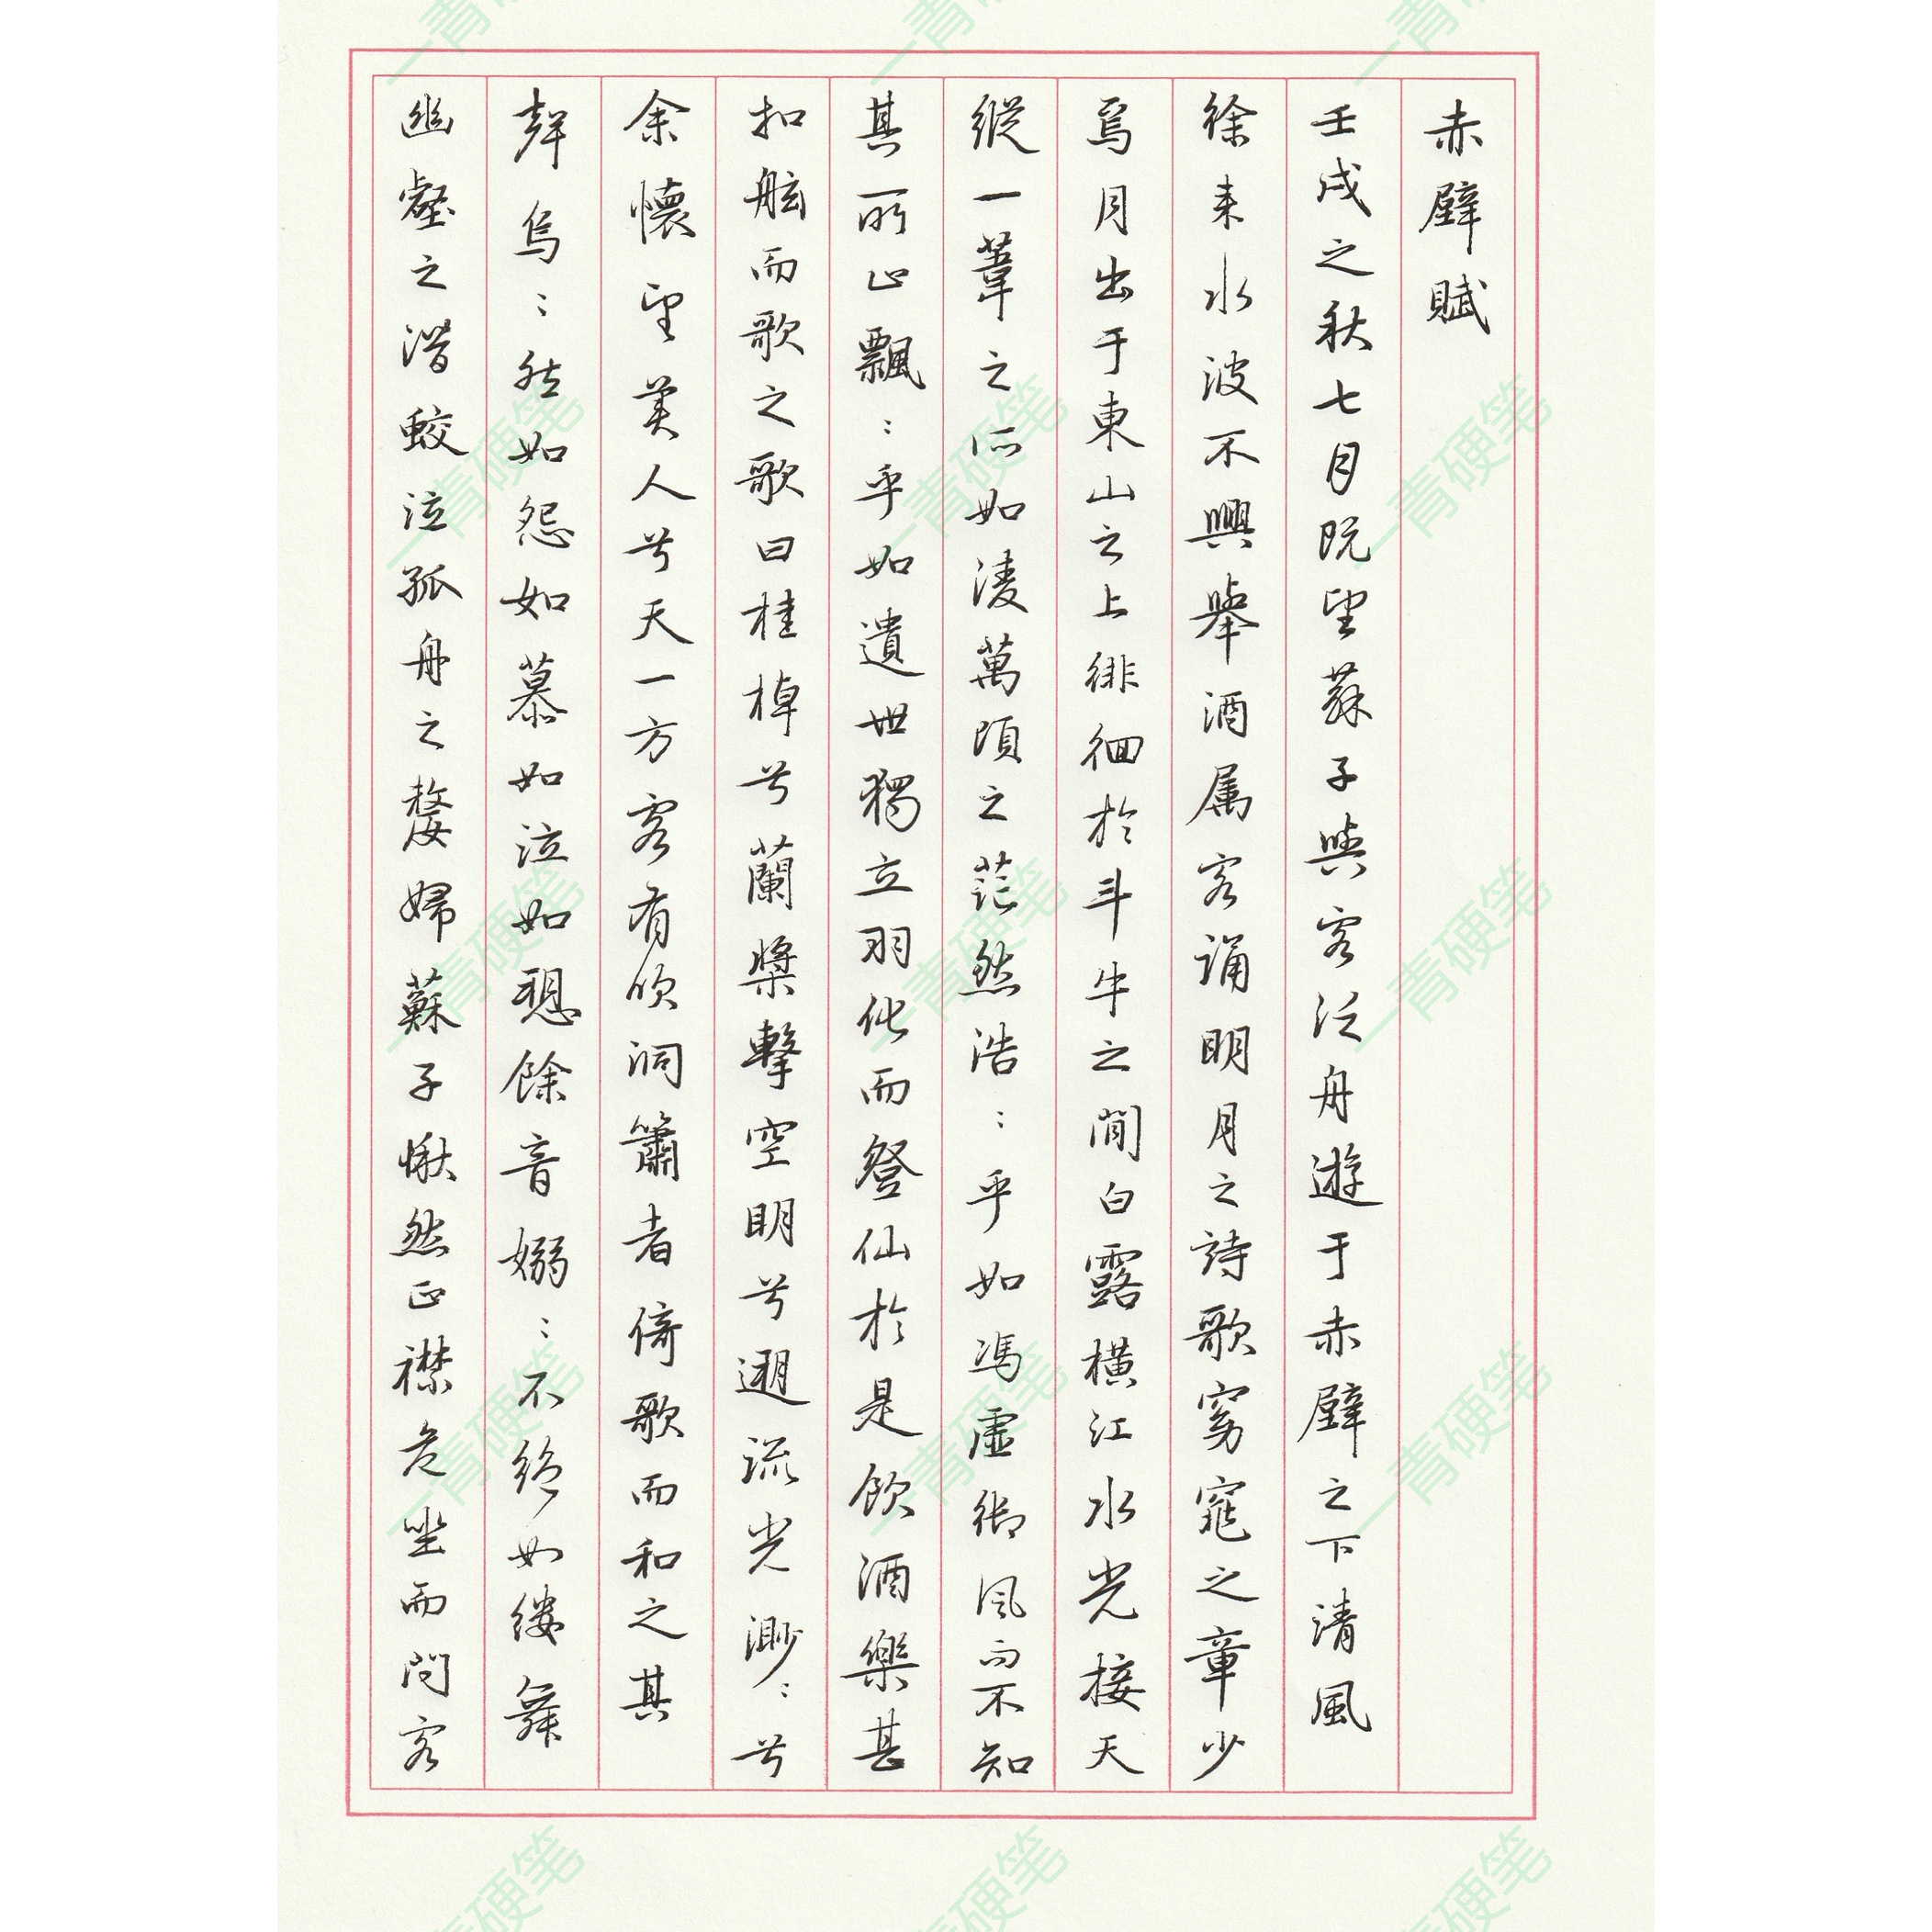 赤壁賦
壬戌之秋七月既望蘇子與客泛舟遊于赤壁之下清風
徐来水波不興舉酒属客誦明月之詩歌窈窕之章少
焉月出于東山之上徘徊於斗牛之間白露橫江水光接天
縱一葦之所如淩萬頃之茫然浩:乎如馮虛御風而不知
其所止飄:乎如遺世獨立羽化而登仙於是飲酒樂甚
扣舷而歌之歌曰桂棹兮蘭槳擊空明兮遡流光渺:兮
余懷望美人兮天一方客有吹洞簫者倚歌而和之其
聲烏:然如怨如慕如泣如愬餘音嫋:不絕如縷舞
幽壑之潛蛟泣孤舟之嫠婦蘇子愀然正襟危坐而問客
一青硬笔